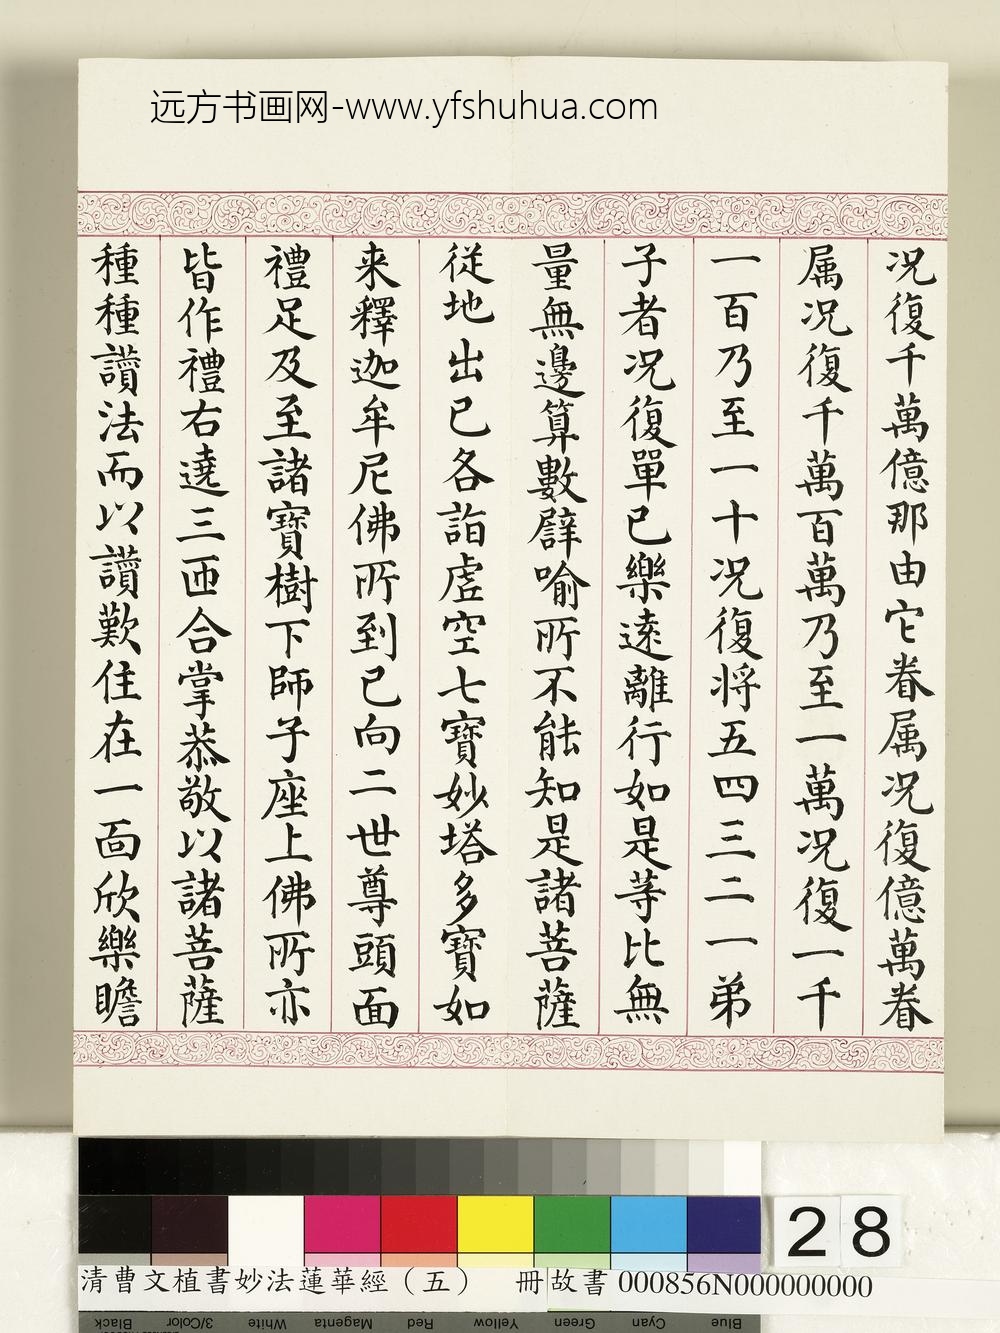 远方书画网-www.yfshuhua.com
况復千萬億那由它眷属况復億萬眷
属况復千萬百萬乃至一萬况復一千
一百乃至一十况復将五四三二一弟
子者况復單已樂遠離行如是等比無
量無邊算數譬喻所不能知是諸菩薩
從地出已各詣虗空七寶妙塔多寶如
来釋迦牟尼佛所到已向二世尊頭面
禮足及至諸寶樹下師子座上佛所亦
皆作禮右遶三匝合掌恭敬以諸菩薩
種種讚法而以讚歎住在一面欣樂瞻
28
清曹文植書妙法蓮華經（五） 冊 故書 000856N000000000
Black 3/Color White Magenta Red Yellow Green Cyan Blue